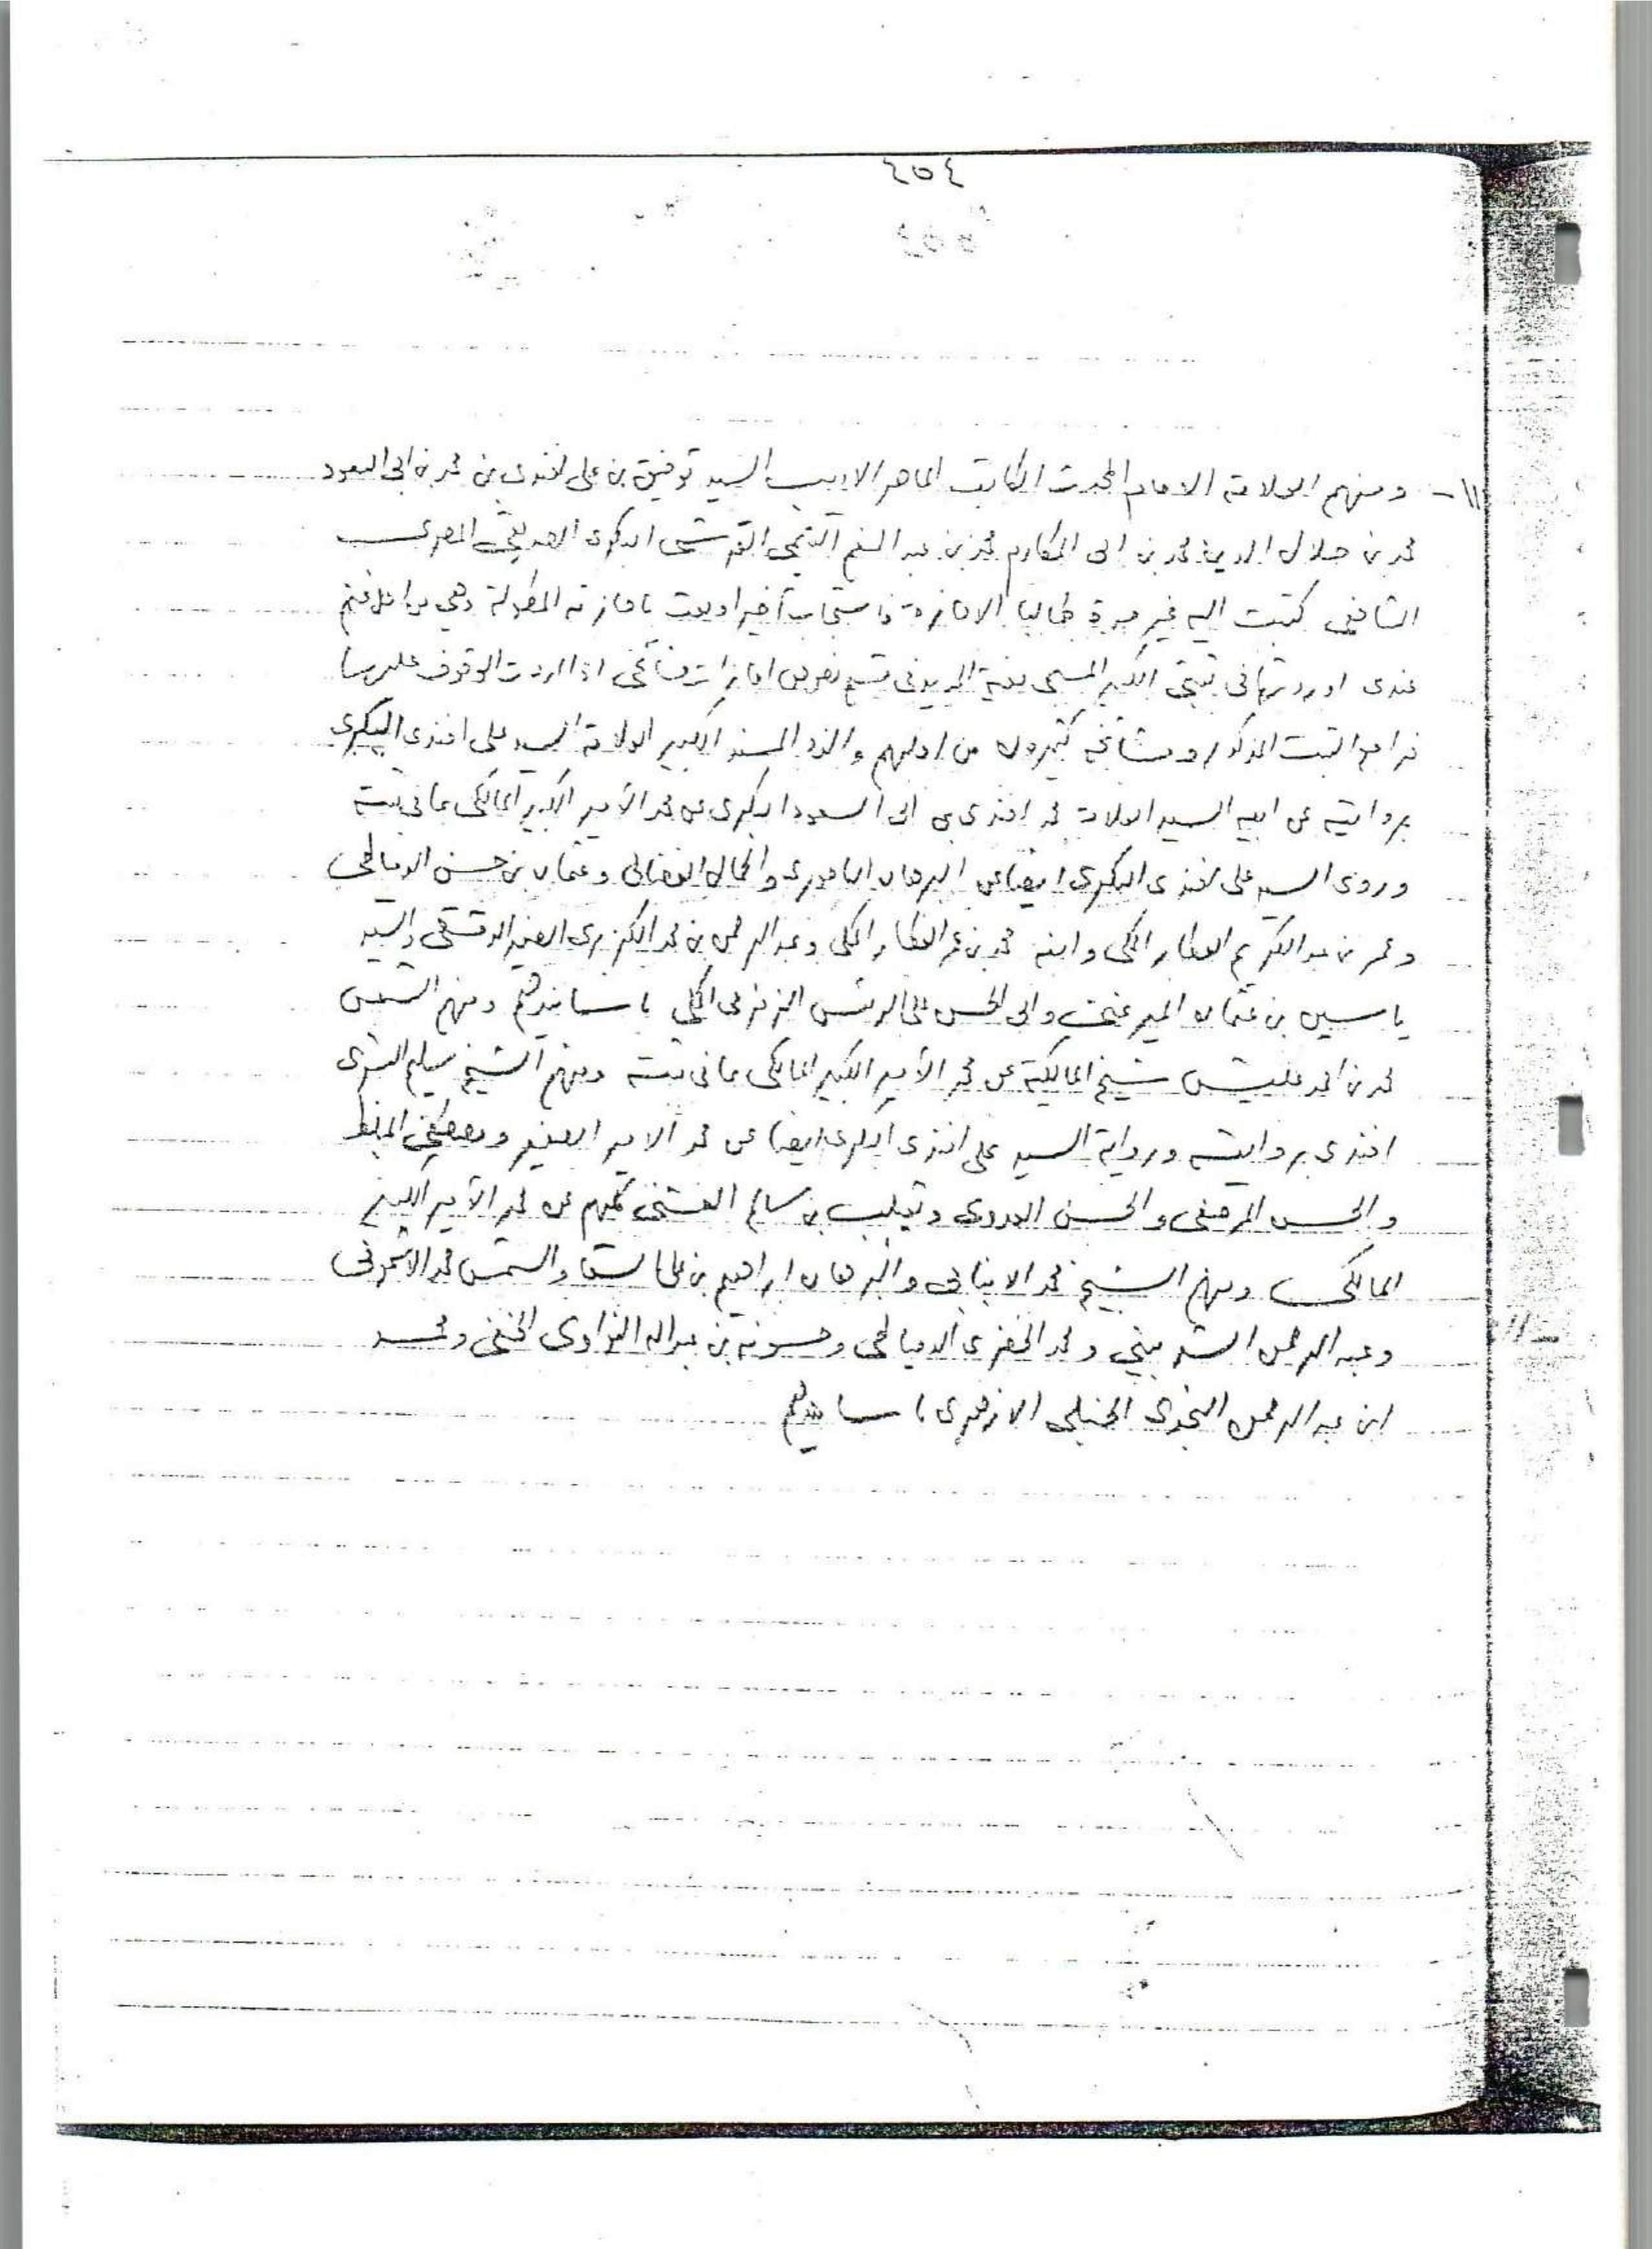 ٤٥٤
١١- ومنهم العلامة الامام المحدث الكاتب الماهر الاديب السيد توفيق بن على افندى بن محمد بن ابى السعود
محمد بن جلال الدين محمد بن ابى المكارم محمد بن عبد المنعم التيمى القرشى البكرى الصديقى المصرى
الشافعى كتبت اليه غير مرة طالبا الاجازة فاستجاب أخيرا وبعث باجازته المطولة وهى
عندى اوردتها فى ثبتى الكبير المسمى بغية المريد فى نصوص اجازات مشائخى اذا اردت الوقوف عليها
فراجع الثبت المذكور ومشائخه كثيرون من اجلهم والده المسند الكبير العلامة السيد على افندى البكرى
بروايته عن ابيه السيد العلامة محمد افندى بن ابى السعود البكرى عن محمد الأمير الكبير المالكى بما فى ثبته
وروى السيد على افندى البكرى ايضا عن البرهان الباجورى والجمال الفضالى وعثمان بن حسن الدمياطى
وعمر بن عبد الكريم العطار المكى وابنه محمد بن عمر العطار المكى وعبد الرحمن بن محمد الكزبرى الصغير الدمشقى والسيد
ياسين بن عثمان الميرغنى وابى الحسن على الرئيس الزمزمى المكى باسانيدهم ومنهم الشمس
محمد بن احمد عليش شيخ المالكية عن محمد الأمير الكبير المالكى بما فى ثبته ومنهم الشيخ سليم البشرى
افندى بروايته ورواية السيد على افندى البكرى ايضا عن محمد الامير الصغير ومصطفى المبلط
والحسن العدوى وثعيلب بن سالم الفشنى كلهم عن محمد الأمير الكبير
المالكى ومنهم الشيخ محمد الانبابى والبرهان ابراهيم بن على السقا والشمس محمد الاشمونى
وعبد الرحمن الشربينى ومحمد الخضرى الدمياطى وحسونه بن عبد الله النواوى الحنفى ومحمد
ابن عبد الرحمن النجدى الحنبلى الازهرى باسانيدهم